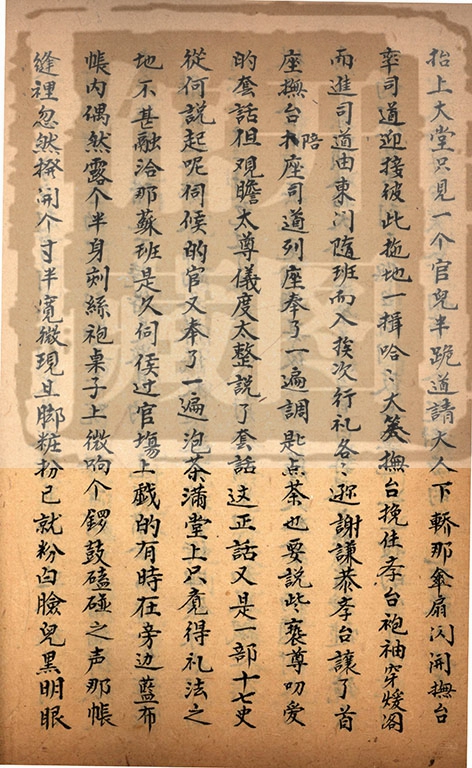 抬上大堂只見一个官兒半跪道請大人下轎那傘扇闪開撫台
率司道迎接彼此拖地一揖哈〻大笑撫台挽住孝台袍袖穿煖阁
而進司道由東门随班而入挨次行礼各〻遜謝謙恭孝台讓了首
座撫台陪座司道列座奉了一遍調匙点茶也要説些褒尊叨愛
的套話但观瞻太尊儀度太整説了套話这正話又是一部十七史
從何説起呢伺候的官又奉了一遍泡茶满堂上只覓得礼法之
地不甚融洽那蘇班是久伺侯过官塲上戯的有時在旁边藍布
帳内偶然露个半身刻絲袍桌子上微响个鑼鼓磕碰之声那帳
縫裡忽然撥開个寸半寬微現旦脚粧扮已就粉白臉兒黑明眼